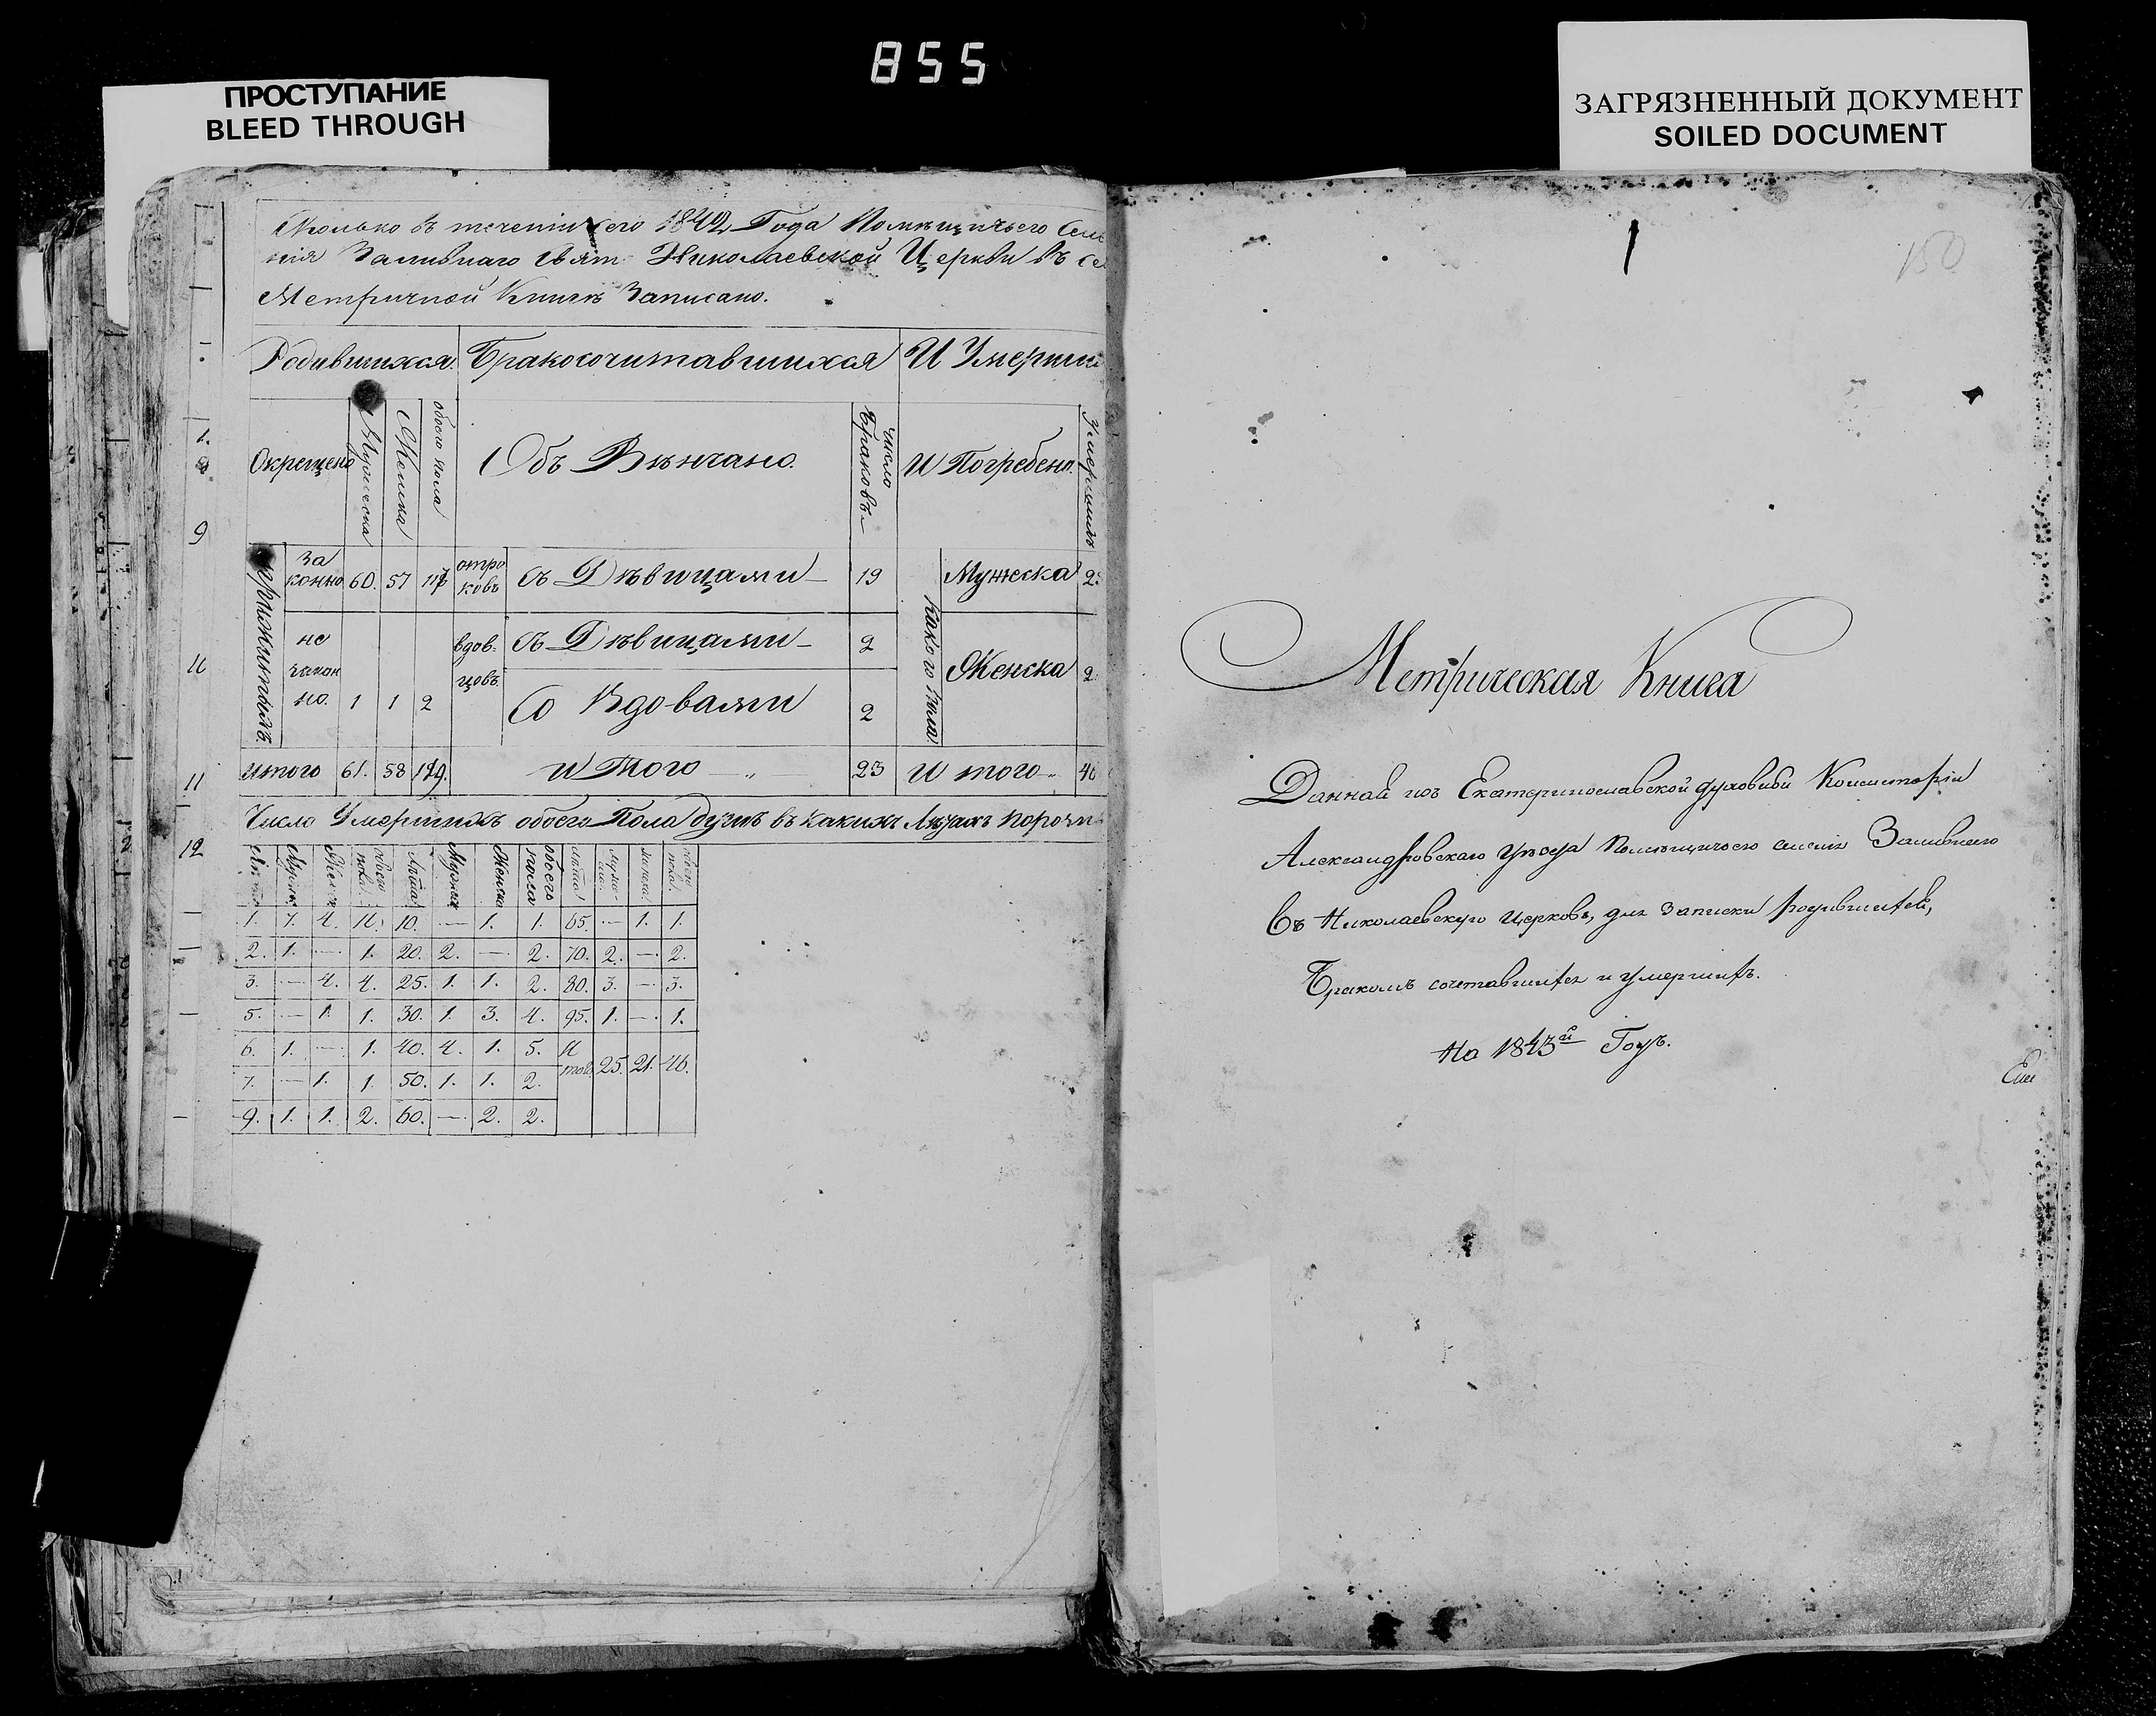 855
ПРОСТУПАНИЕ
BLEED THROUGH
ЗАГРЯЗНЕННЫЙ ДОКУМЕНТ
SOILED DOCUMENT
Сколько въ теченіи сего 1842 Года Помѣщичьего Селе
нія Заливнаго Свят Николаевской Церкви въ се
Метричной Книгѣ Записано.
Родившихся. Бракосочитавшихся И Умерши
Окрещено Мужеска Женска обоего пола Объ Вѣнчано. число Браковъ И Погребено. Умершихъ
за
конно 60. 57 117 отро
ковъ съ Дѣвицами 19 Мужеска 2
не
закон
но. 1 1 2 вдов.
цовъ съ Дѣвицами 2 Какого Пола Женска 2
Со Вдовами 2
итого 61. 58 119. и Того 23 И того 46
Число Умершихъ обоего Пола душъ въ какихъ Лѣтахъ порозн
Мужеска Женска обоего пола Лѣта
1. 7. 4. 11. 10. — 1. 1. 65. — 1. 1.
2. 1. — 1. 20. 2. — 2. 70. 2. — 2.
3. — 4. 4. 25. 1. 1. 2. 80. 3. — 3.
5. — 1. 1. 30. 1. 3. 4. 95. 1. — 1.
6. 1. — 1. 40. 4. 1. 5. И
того 25. 21. 46.
7. — 1. 1. 50. 1. 1. 2.
9. 1. 1. 2. 60. — 2. 2.
9
11
12
150
Метрическая Книга
Данная изъ Екатеринославской духовной Консисторіи
Александровскаго уѣзда Помѣщичьего селенія Заливнаго
Въ Николаевскую церковь, для записки родившихся,
Бракомъ сочетавшихся и умершихъ.
На 1843й Годъ.